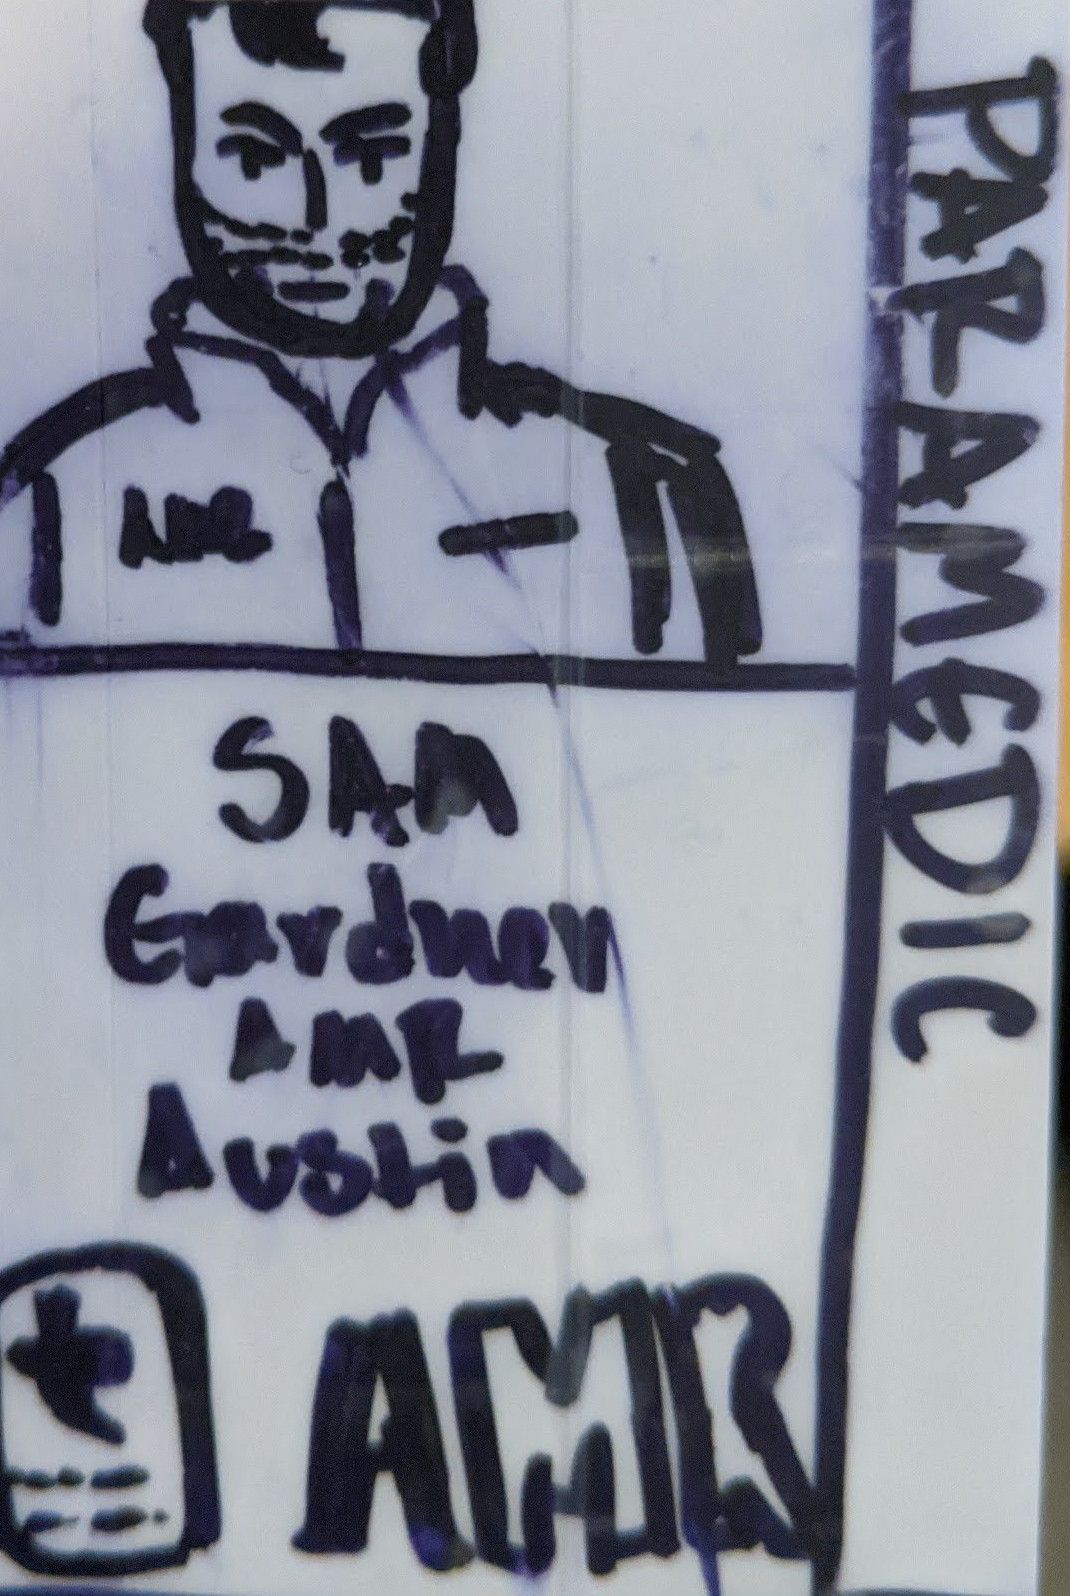 PARAMEDIC
AMR
SAM
Gardner
AMR
Austin
AMR